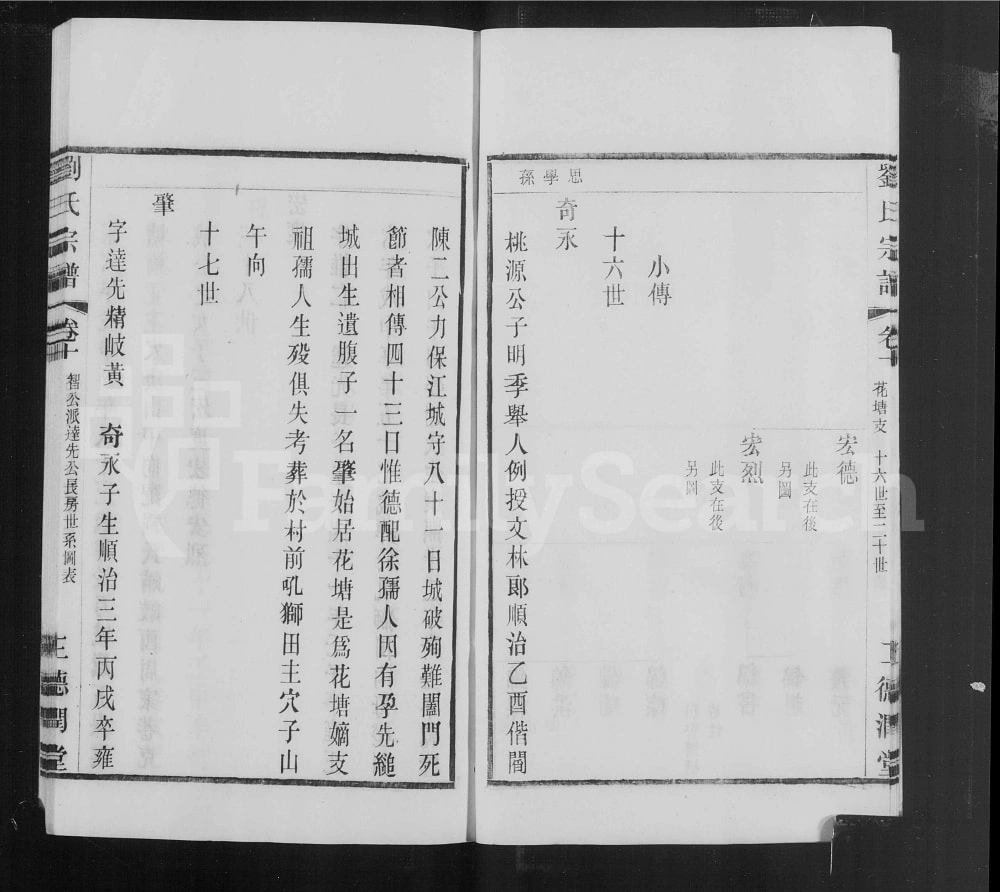 劉氏宗譜
卷十
花塘支 十六世至二十世
德潤堂
宏德
此支在後
另圖
宏烈
此支在後
另圖
小傳
十六世
思學孫
奇永
桃源公子明季舉人例授文林郎順治乙酉偕閻
陳二公力保江城守八十一日城破殉難闔門死
節者相傳四十三口惟德配徐孺人因有孕先縋
城出生遺腹子一名肇始居花塘是爲花塘嫡支
祖孺人生殁俱失考葬於村前吼獅田主穴子山
午向
十七世
肇
字達先精岐黃 奇永子生順治三年丙戌卒雍
劉氏宗譜
卷十
智公派達先公長房世系圖表
德潤堂
FamilySearch